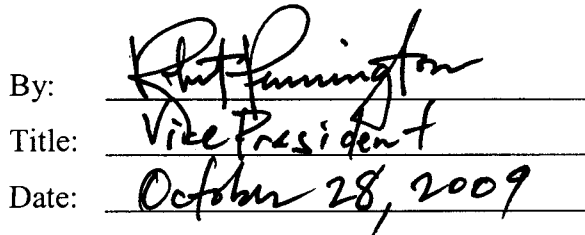 By: Robert Pennington
Title: Vice President
Date: October 28, 2009